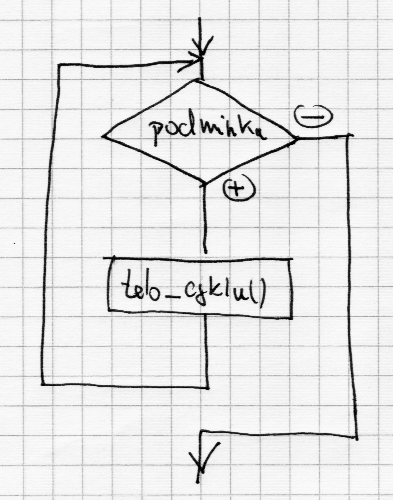 podmínka
−
+
telo_cyklu()